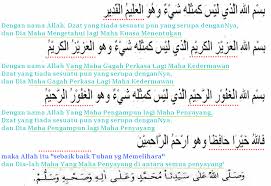 بسم الله الذي ليس كمثله شيء وهو العليم القدير
Dengan nama Allah, Dzat yang tiada sesuatu pun yang serupa denganNya,
dan Dia Maha Mengetahui lagi Maha Kuasa Menentukan
بسم الله الذي ليس كمثله شيء وهو العزيز الكريم
Dengan nama Allah Yang Maha Gagah Perkasa Lagi Maha Kedermawan
Dzat yang tiada sesuatu pun yang serupa denganNya,
dan Dia Maha Gagah Perkasa lagi Maha Kedermawan
بسم الله الذي ليس كمثله شيء وهو الغفور الرحيم
Dengan nama Allah Yang Maha Pengampun lagi Maha Penyayang
Dzat yang tiada sesuatu pun yang serupa denganNya,
dan Dia Maha Pengampun lagi Maha Penyayang
فالله خيرا حافظا وهو ارحم الراحمين
maka Allah itu "sebaik baik Tuhan yg Memelihara"
dan Dia-lah Maha Yang Maha Penyayang di antara semua penyayang
وصلى الله على سيدنا محمد وعلى آله وصحبه وسلم